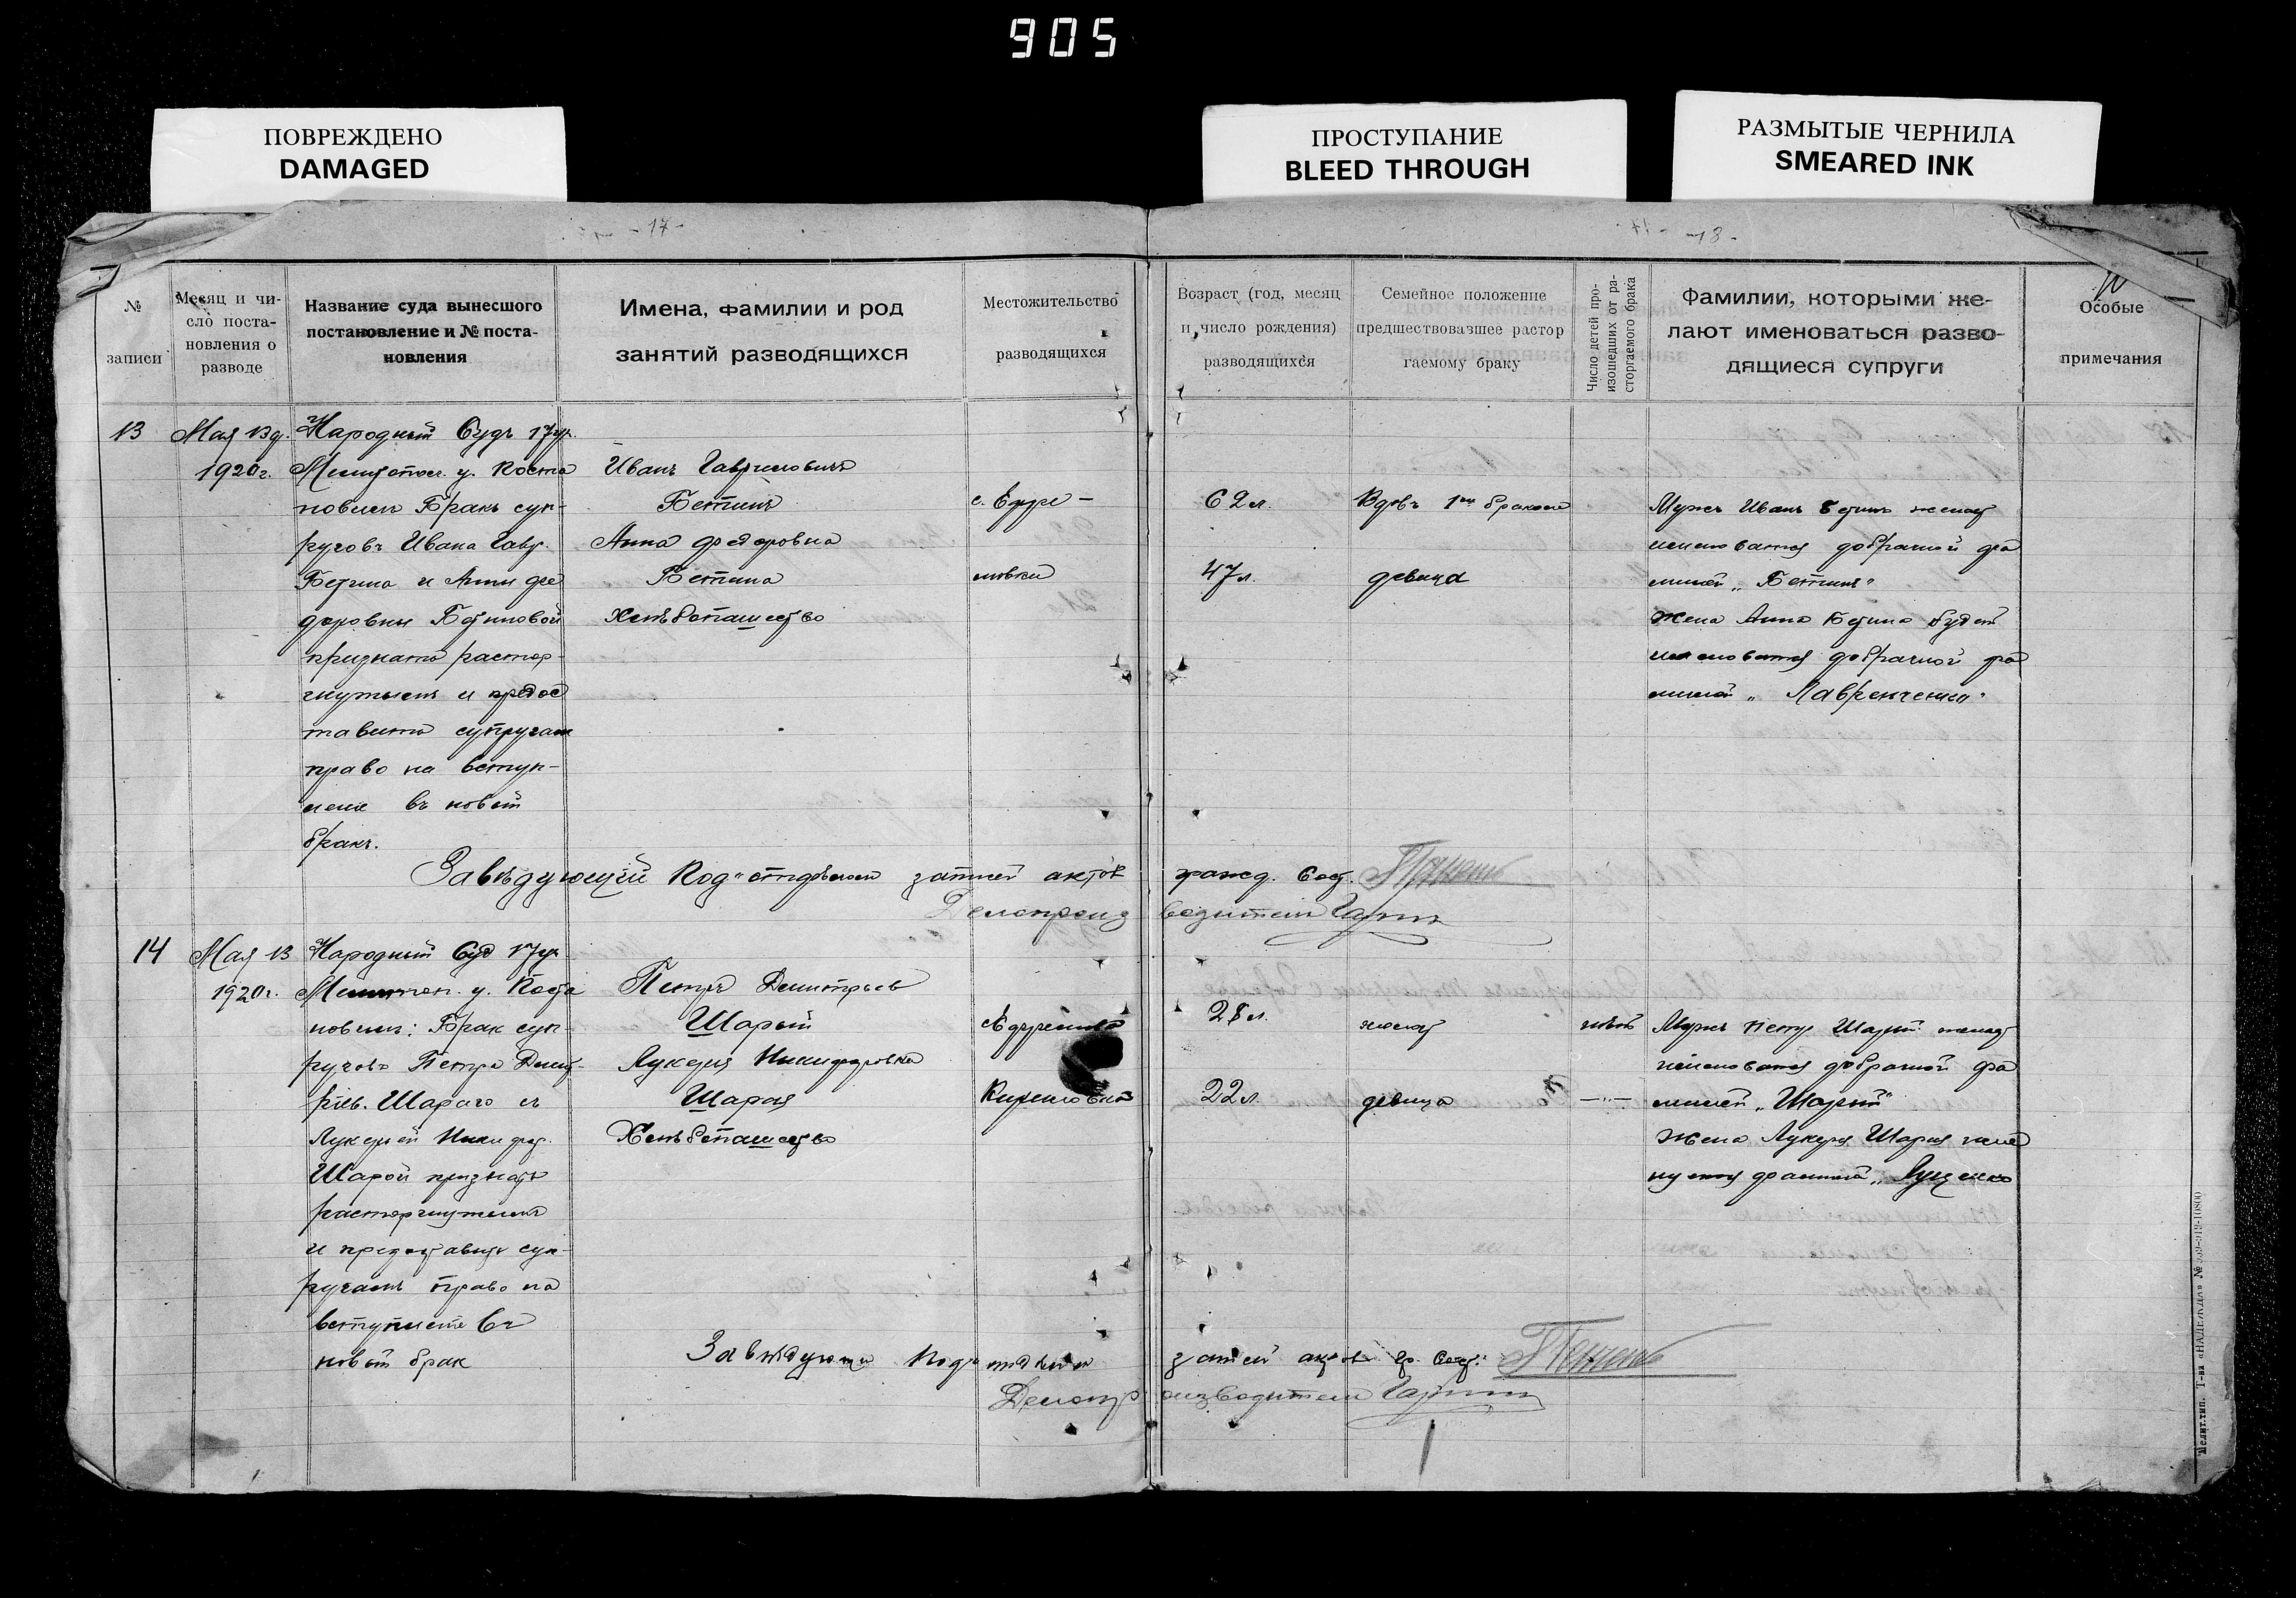 905
ПОВРЕЖДЕНО
DAMAGED
ПРОСТУПАНИЕ
BLEED THROUGH
РАЗМЫТЫЕ ЧЕРНИЛА
SMEARED INK
-17-
-18-
№
записи
Месяц и чи-
сло поста-
новления о
разводе
Название суда вынесшого
постановление и № поста-
новления
Имена, фамилии и род
занятий разводящихся
Местожительство
разводящихся
Возраст (год, месяц
и число рождения)
разводящихся
Семейное положение
предшествовавшее растор
гаемому браку
Число детей про-
изошедших от ра-
сторгаемого брака
Фамилии, которыми же-
лают именоваться разво-
дящиеся супруги
Особые
примечания
13
Мая 13 д.
1920 г.
Народный Судъ 17 уч.
Мелитопол. у. Поста
новилъ Бракъ суп-
руговъ Ивана Гавр.
Бетина и Анны Фе
доровны Бетиновой
признать растор-
гнутымъ и предос
тавить супругам
право на вступ-
въ новый
бракъ.
Иванъ Гавриловичъ
Бетинъ
Анна Федоровна
Бетина
Хлѣбопашество
с. Ефре-
мовки
62 л.
47 л.
Вдовъ 1м бракомъ
девица
Мужъ Иванъ Бетинъ желает
именоватся добрачной фа
милией „Бетинъ"
Жена Анна Бетина будет
именоватся добрачной фа
милией „Лавренченко"
Завѣдующий Под-отдѣломъ записей актов гражд. Сост.
Делопроизводитель
14
Мая 13
1920 г.
Народный Суд 17 уч
Мелитоп. у. Поста
новилъ: Брак суп-
руговъ Петра Дмит-
ріев. Шараго съ
Лукерьей Никифор.
Шарой признать
расторгнутымъ
и предоставить суп-
ругамъ право на
вступление въ
новый брак
Петръ Дмитрьев
Шарый
Лукерья Никифоровна
Шарая
Хлѣбопашество
Кириловка
28 л.
22 л.
женат
девица
нѣтъ
— „ —
Мужъ Петр Шарый желает
именоватся добрачной фа
милией „Шарый"
Жена Лукерья Шарая
фамилией „Луценко
Завѣдующи Подъ отделом записей актов гр. Сост.
Делопроизводитель
Мелит.тип. Т-ва «НАДЕЖДА»